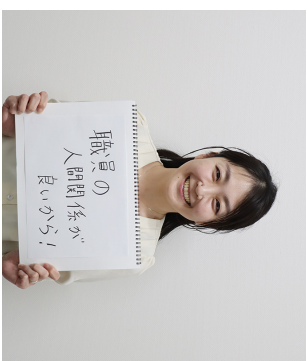 職員の
人間関係が
良いから!